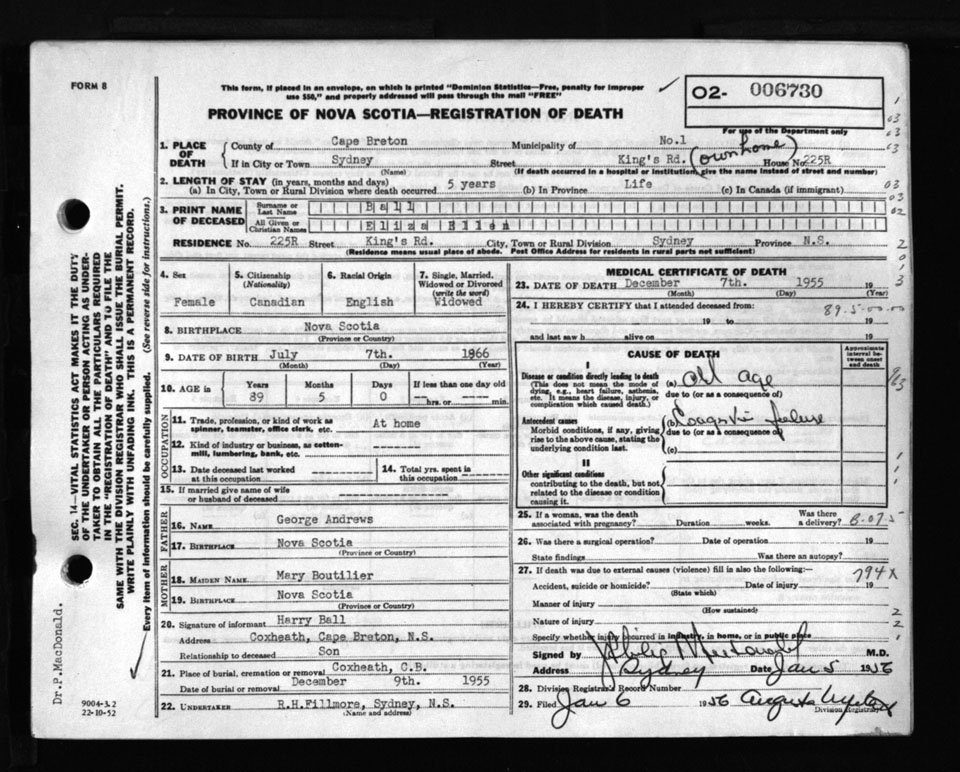 FORM 8
This form, if placed in an envelope, on which is printed "Dominion Statistics—Free, penalty for improper
use $50," and properly addressed will pass through the mail "FREE"
02- 006730
PROVINCE OF NOVA SCOTIA—REGISTRATION OF DEATH
For use of the Department only
1. PLACE OF DEATH { County of Cape Breton Municipality of No.1
If in City or Town Sydney Street King's Rd. (own home) House No. 225R
(Name) (If death occurred in a hospital or institution, give the name instead of street and number)
2. LENGTH OF STAY (in years, months and days)
(a) In City, Town or Rural Division where death occurred 5 years (b) In Province Life (c) In Canada (if immigrant)
3. PRINT NAME OF DECEASED { Surname or Last Name Ball
All Given or Christian Names Eliza Ellen
RESIDENCE No. 225R Street King's Rd. City, Town or Rural Division Sydney Province N.S.
(Residence means usual place of abode. Post Office Address for residents in rural parts not sufficient)
4. Sex Female
5. Citizenship (Nationality) Canadian
6. Racial Origin English
7. Single, Married, Widowed or Divorced (write the word) Widowed
8. BIRTHPLACE Nova Scotia
(Province or Country)
9. DATE OF BIRTH July 7th. 1866
(Month) (Day) (Year)
10. AGE in Years 89 Months 5 Days 0 If less than one day old
hrs. or min.
OCCUPATION
11. Trade, profession, or kind of work as spinner, teamster, office clerk, etc. At home
12. Kind of industry or business, as cotton-mill, lumbering, bank, etc.
13. Date deceased last worked at this occupation
14. Total yrs. spent in this occupation
15. If married give name of wife or husband of deceased
FATHER
16. NAME George Andrews
17. BIRTHPLACE Nova Scotia
(Province or Country)
MOTHER
18. MAIDEN NAME Mary Boutilier
19. BIRTHPLACE Nova Scotia
(Province or Country)
20. Signature of informant Harry Ball
Address Coxheath, Cape Breton, N.S.
Relationship to deceased Son
21. Place of burial, cremation or removal Coxheath, C.B.
Date of burial or removal December 9th. 1955
22. UNDERTAKER R.H.Fillmore, Sydney, N.S.
(Name and address)
MEDICAL CERTIFICATE OF DEATH
23. DATE OF DEATH December 7th. 1955 19
(Month) (Day) (Year)
24. I HEREBY CERTIFY that I attended deceased from: 89-5-00-00
19 to 19
and last saw h alive on 19
CAUSE OF DEATH
Approximate interval between onset and death
I
Disease or condition directly leading to death (a) Old age
(This does not mean the mode of dying, e.g., heart failure, asthenia, etc. It means the disease, injury, or complication which caused death.)
due to (or as a consequence of)
Antecedent causes (b) failure
Morbid conditions, if any, giving rise to the above cause, stating the underlying condition last.
due to (or as a consequence of)
(c)
II
Other significant conditions contributing to the death, but not related to the disease or condition causing it.
25. If a woman, was the death associated with pregnancy? Duration weeks. Was there a delivery?
26. Was there a surgical operation? Date of operation 19
State findings Was there an autopsy?
27. If death was due to external causes (violence) fill in also the following:— 794X
Accident, suicide or homicide? Date of injury 19
(State which)
Manner of injury
(How sustained)
Nature of injury
Specify whether injury occurred in industry, in home, or in public place
Signed by Philip MacDonald M.D.
Address Sydney Date Jan 5 1956
28. Division Registrar's Record Number
29. Filed Jan 6 1956
Division Registrar
SEC. 14—VITAL STATISTICS ACT MAKES IT THE DUTY
OF THE UNDERTAKER OR PERSON ACTING AS UNDER-
TAKER TO OBTAIN ALL THE PARTICULARS REQUIRED
IN THE "REGISTRATION OF DEATH" AND TO FILE THE
SAME WITH THE DIVISION REGISTRAR WHO SHALL ISSUE THE BURIAL PERMIT.
WRITE PLAINLY WITH UNFADING INK. THIS IS A PERMANENT RECORD.
Every item of information should be carefully supplied. (See reverse side for instructions.)
Dr.P.MacDonald.
9004-3.2
22-10-52